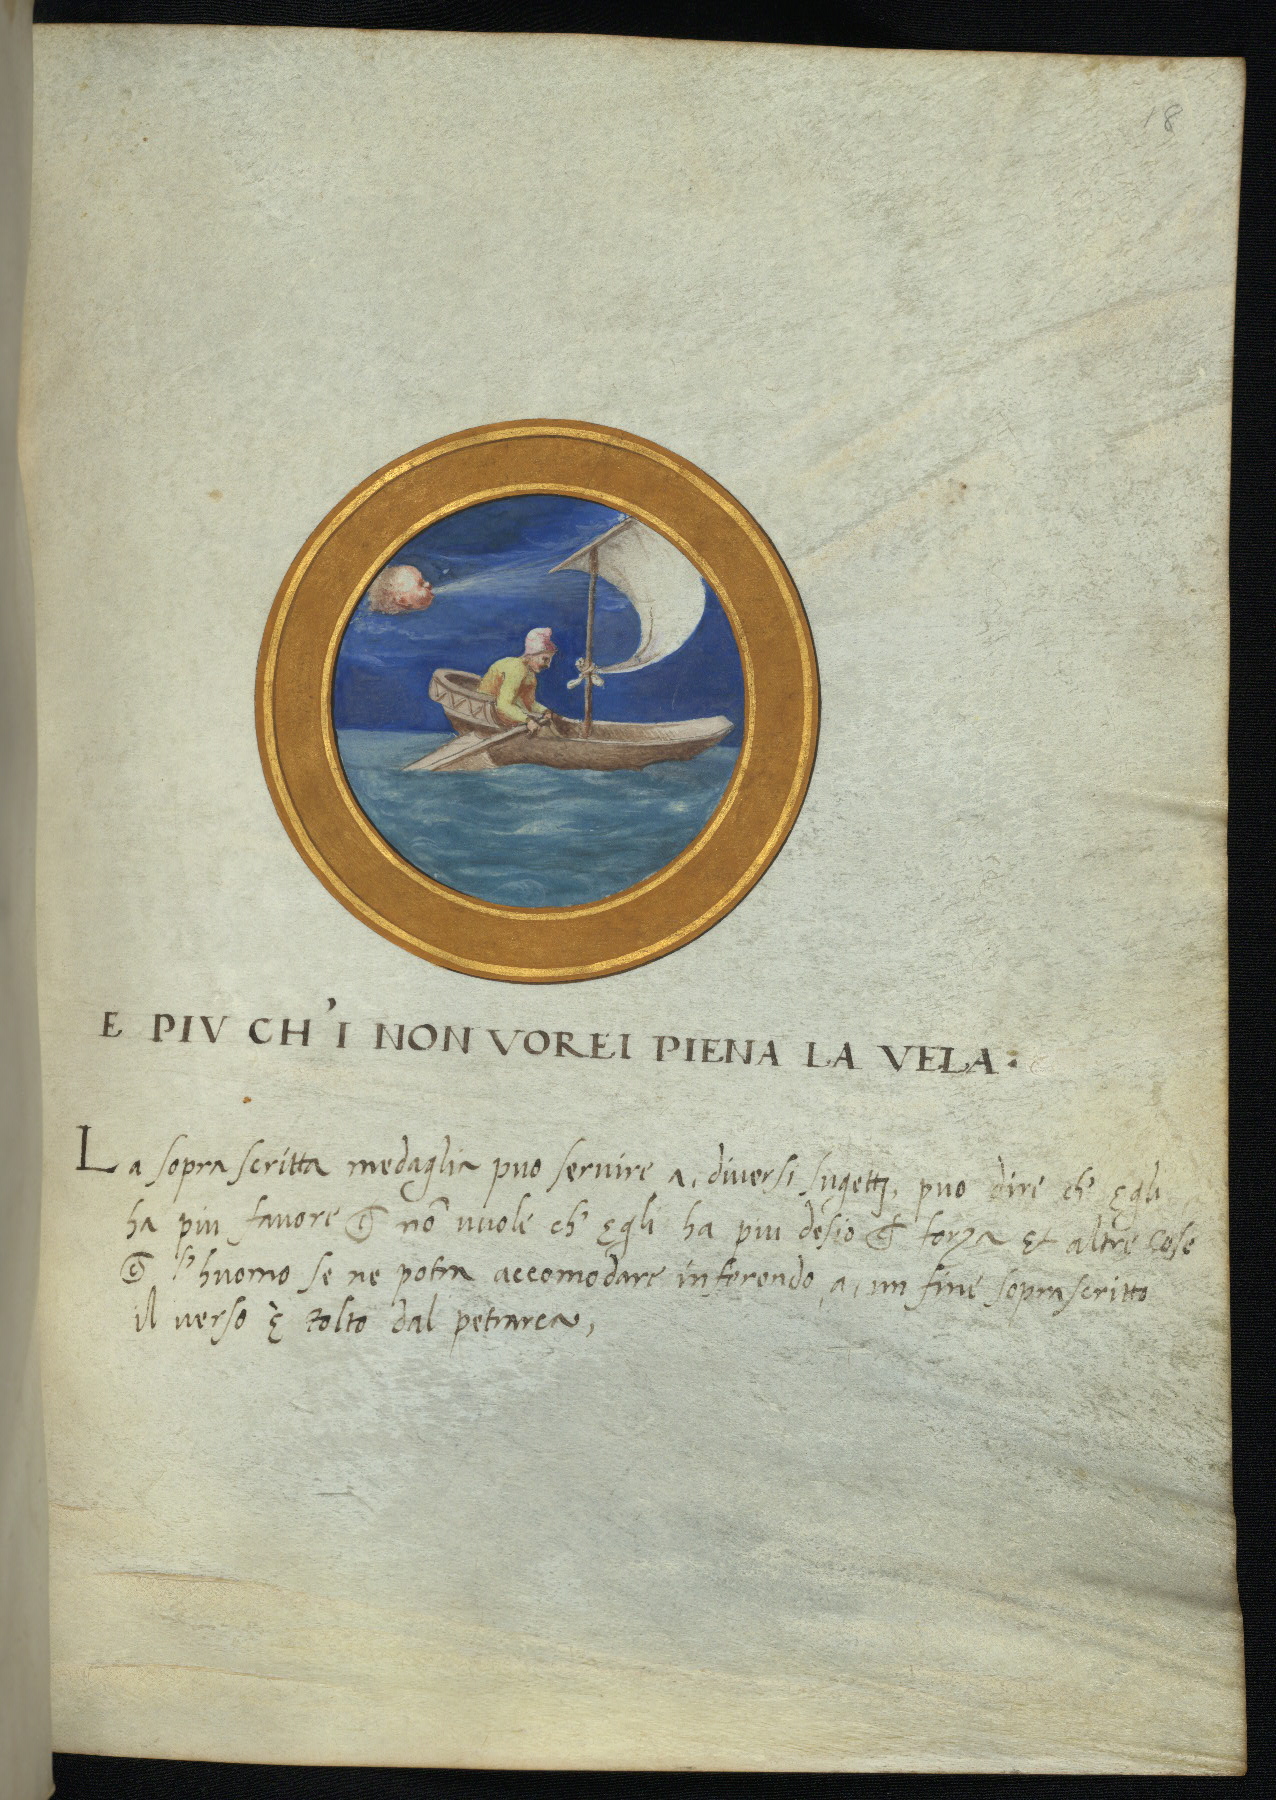 18
E PIV CH'I NON VOREI PIENA LA VELA.
La soprascritta medaglia puo seruire a, diuersi sugettj, puo dire ch' egli
ha piu fauore no͂ uuole ch' egli ha piu desio forza et altre cose
l'huomo se ne potra accomodare inferendo a, un fine soprascritto
il verso è tolto dal petrarca,